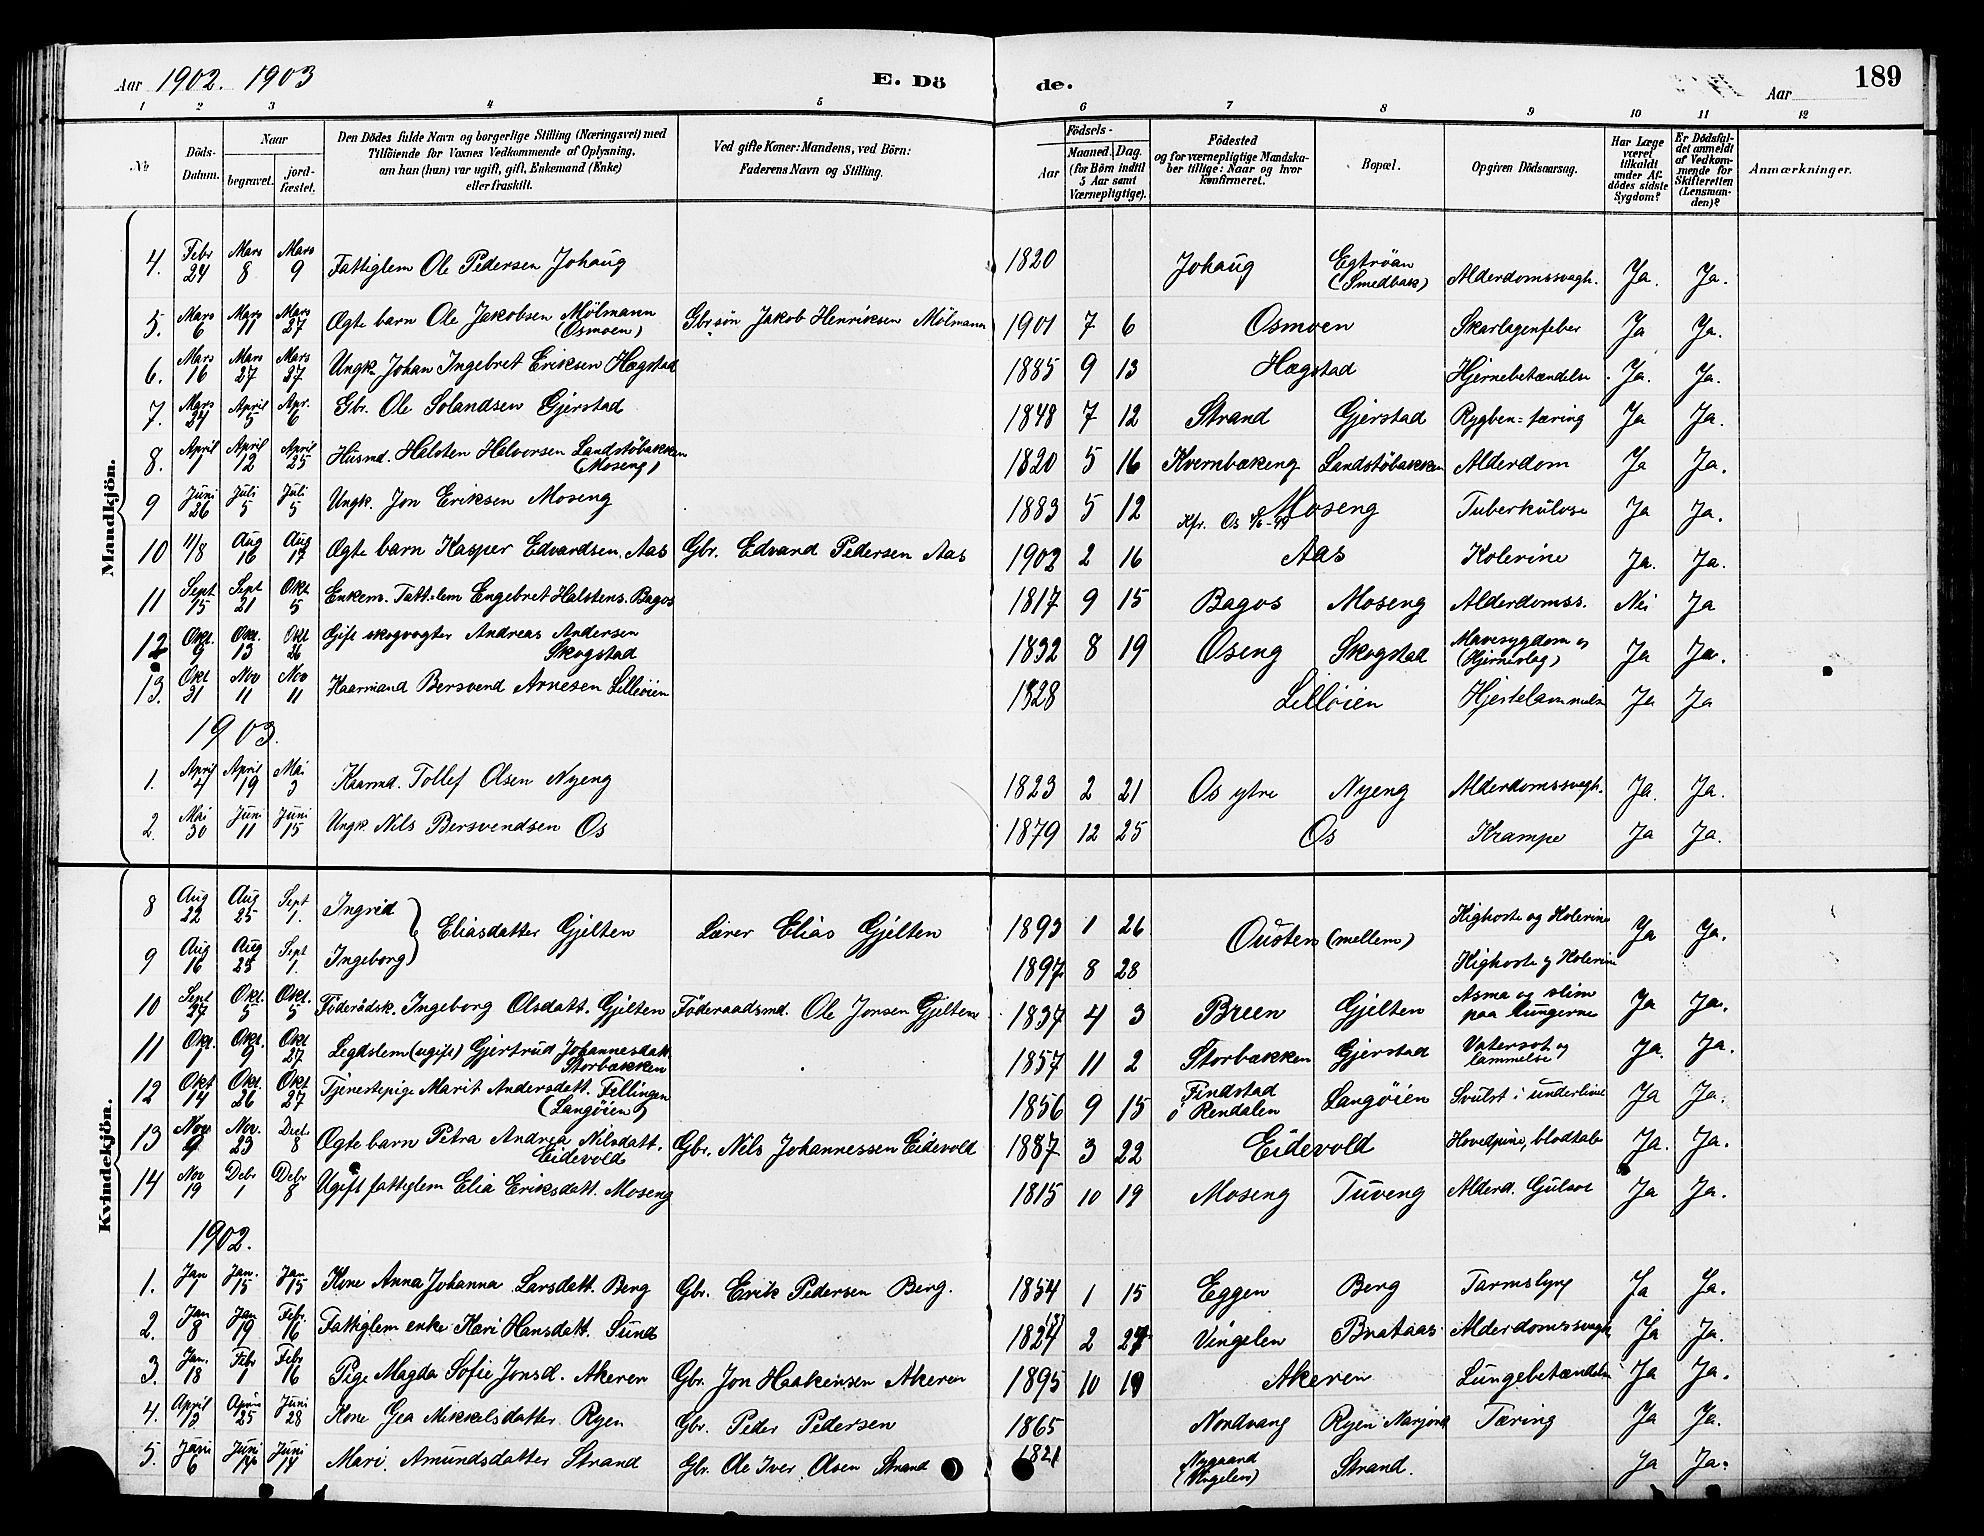 Aar 1902. 1903 E. Dö de. Aar 189
1 2 3 4 5 6 7 8 9 10 11 12
No Döds-Datum. Naar begravet. jord-fæstet. Den Dödes fulde Navn og borgerlige Stilling (Næringsvei) med Tilföiende for Voxnes Vedkommende af Oplysning, om han (hun) var ugift, gift, Enkemand (Enke) eller fraskilt. Ved gifte Koner: Mandens, ved Börn: Faderens Navn og Stilling. Födsels- Aar Maaned. Dag. (for Börn indtil 5 Aar samt Værnepligtige). Födested og for værnepligtige Mandskaber tillige: Naar og hvor konfirmeret. Bopæl. Opgiven Dödsaarsag. Har Læge været tilkaldt under Afdödes sidste Sygdom? Er Dödsfaldet anmeldt af Vedkommende for Skifteretten (Lensmanden)? Anmærkninger.
Mandkjön.
4. Febr 24 Mars 8 Mars 9 Fattiglem Ole Pedersen Johaug 1820 Johaug Egtröan (Smedbakk) Alderdomssvagh. Ja. Ja.
5. Mars 6 Mars 11 Mars 27 Ægte barn Ole Jakobsen Mölmann (Osmoen) Gbrsön Jakob Henriksen Mölmann 1901 7 6 Osmoen Skarlagenfeber Ja Ja.
6. Mars 16 Mars 27 Mars 27 Ungk. Johan Ingebret Eriksen Hægstad 1885 9 13 Hægstad Hjernebetændelse Ja. Ja.
7. Mars 24 April 5 Apr. 6 Gbr. Ole Solandsen Gjerstad 1848 7 12 Strand Gjerstad Rygben-tæring Ja Ja.
8. April 1 April 12 April 25 Husmd. Halsten Halvorsen Landstöbakken (Moseng) 1820 5 16 Kvernbækeng Landstöbakken Alderdom Ja Ja.
9 Juni 26 Juli 5 Juli 5 Ungk. Jon Eriksen Moseng 1883 5 12 Kfr. Os Moseng Tuberkulose Ja Ja.
10 11/8 Aug 16 Aug 17 Ægte barn Kasper Edvardsen Aas Gbr. Edvard Pedersen Aas 1902 2 16 Aas Kolerine Ja. Ja.
11 Sept 15 Sept 21 Okt 5 Enkem. Fatt.lem Engebret Halstens. Bagos 1817 9 15 Bagos Moseng Alderdomss. Nei Ja
12 Okt. 9 Okt. 13 Okt 26 Gift skogvogter Andreas Andersen Skogstad 1832 8 19 Oseng Skogstad Mavesygdom og (Hjerneslag) Ja Ja.
13. Okt 31 Nov 11 Nov 11 Kaarmand Bersvend Arnesen Lilleöien 1828 Lillöien Hjertelammelse Ja Ja
1903.
1. April 4 April 19 Mai 3 Kaarmd. Tollef Olsen Nyeng 1823 2 21 Os ytre Nyeng Alderdomssvagh. Ja. Ja.
2. Mai 30 Juni 11 Juni 15 Ungk Nils Bersvendsen Os 1879 12 25 Os Krampe Ja Ja.
Kvindekjön.
8 Aug 22 Aug 25 Sept 1. Ingrid Eliasdatter Gjelten Lærer Elias Gjelten 1893 1 26 Ousten (mellem) Kighoste og Kolerine Ja Ja.
9 Aug 16 Aug 25 Sept 1. Ingeborg 1897 8 28 Kighoste og Kolerine
10 Sept 27 Okt. 5 Okt. 5 Föderådsk. Ingeborg Olsdatt. Gjelten Föderaadsmd. Ole Jonsen Gjelten 1837 4 3 Breen Gjelten Asma og slim paa lungerne Ja Ja.
11 Okt. 1 Okt. 9 Okt 27 Legdslem (ugift) Gjertrud Johannesdatt. Storbækken 1857 11 2 Storbækken Gjerstad Vatersot og lammelse Ja. Ja.
12 Okt 14 Okt. 26 Okt 27 Tjenestepige Marit Andersdatt. Fellingen (Langöien) 1856 9 15 Findstad ö Rendalen Langöien Svulst i underlivet Ja Ja.
13 Nov 9 Nov. 23 Dect. 8 Ægte barn Petra Andrea Nilsdatt. Eidevold Gbr. Nils Johannessen Eidevold 1887 3 22 Eidevold Hovedpine, blodtab Ja. Ja.
14 Nov 19 Debr 1 Debr 8 Ugift fattiglem Elia Eriksdatt. Moseng 1815 10 19 Moseng Tuveng Alderd. Gulsot Ja Ja.
1902.
1. Jan 1 Jan. 15 Jan 15 Kone Anna Johanna Larsdatt. Berg Gbr. Eirik Pedersen Berg. 1854 1 15 Eggen Berg Tarmslyng Ja Ja.
2. Jan 8 Jan 19 Febr. 16 Fattiglem enke Kari Hansdatt. Sund 1824 2 27 Vingelen Brataas Alderdomssvagh Ja Ja.
3. Jan. 18 Febr 1 Febr 16 Pige Magda Sofie Jonsd. Akeren Gbr. Jon Haakensen Akeren 1895 10 19 Akeren Lungebetændelse Ja Ja.
4. April 12 April 25 Juni 28 Kone Gea Mikkelsdatter Ryen Gbr. Peder Pedersen 1865 Nordvang Ryen Tæring Ja Ja.
5. Juni 6 Juni 14 Juni 14 Mari Amundsdatter Strand Gbr. Ole Iver Olsen Strand 1821 Nygaard (Vingelen) Strand. Ja Ja.